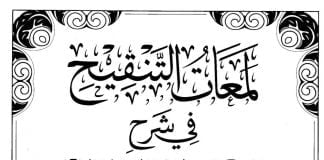 لمعات التنقيح
في شرح